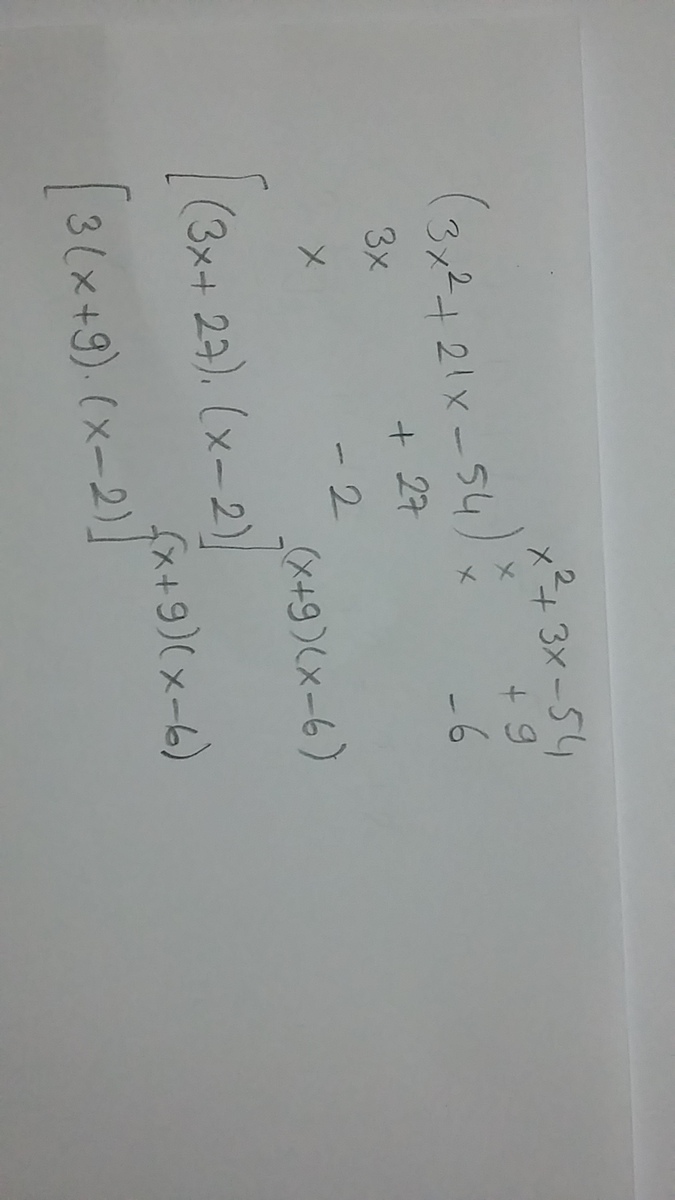 (3x² + 21x - 54) x² + 3x - 54
3x + 27 x + 9
x - 2 x - 6
[(3x + 27) . (x - 2)] (x+9)(x-6)
[3(x+9) . (x-2)] (x+9)(x-6)